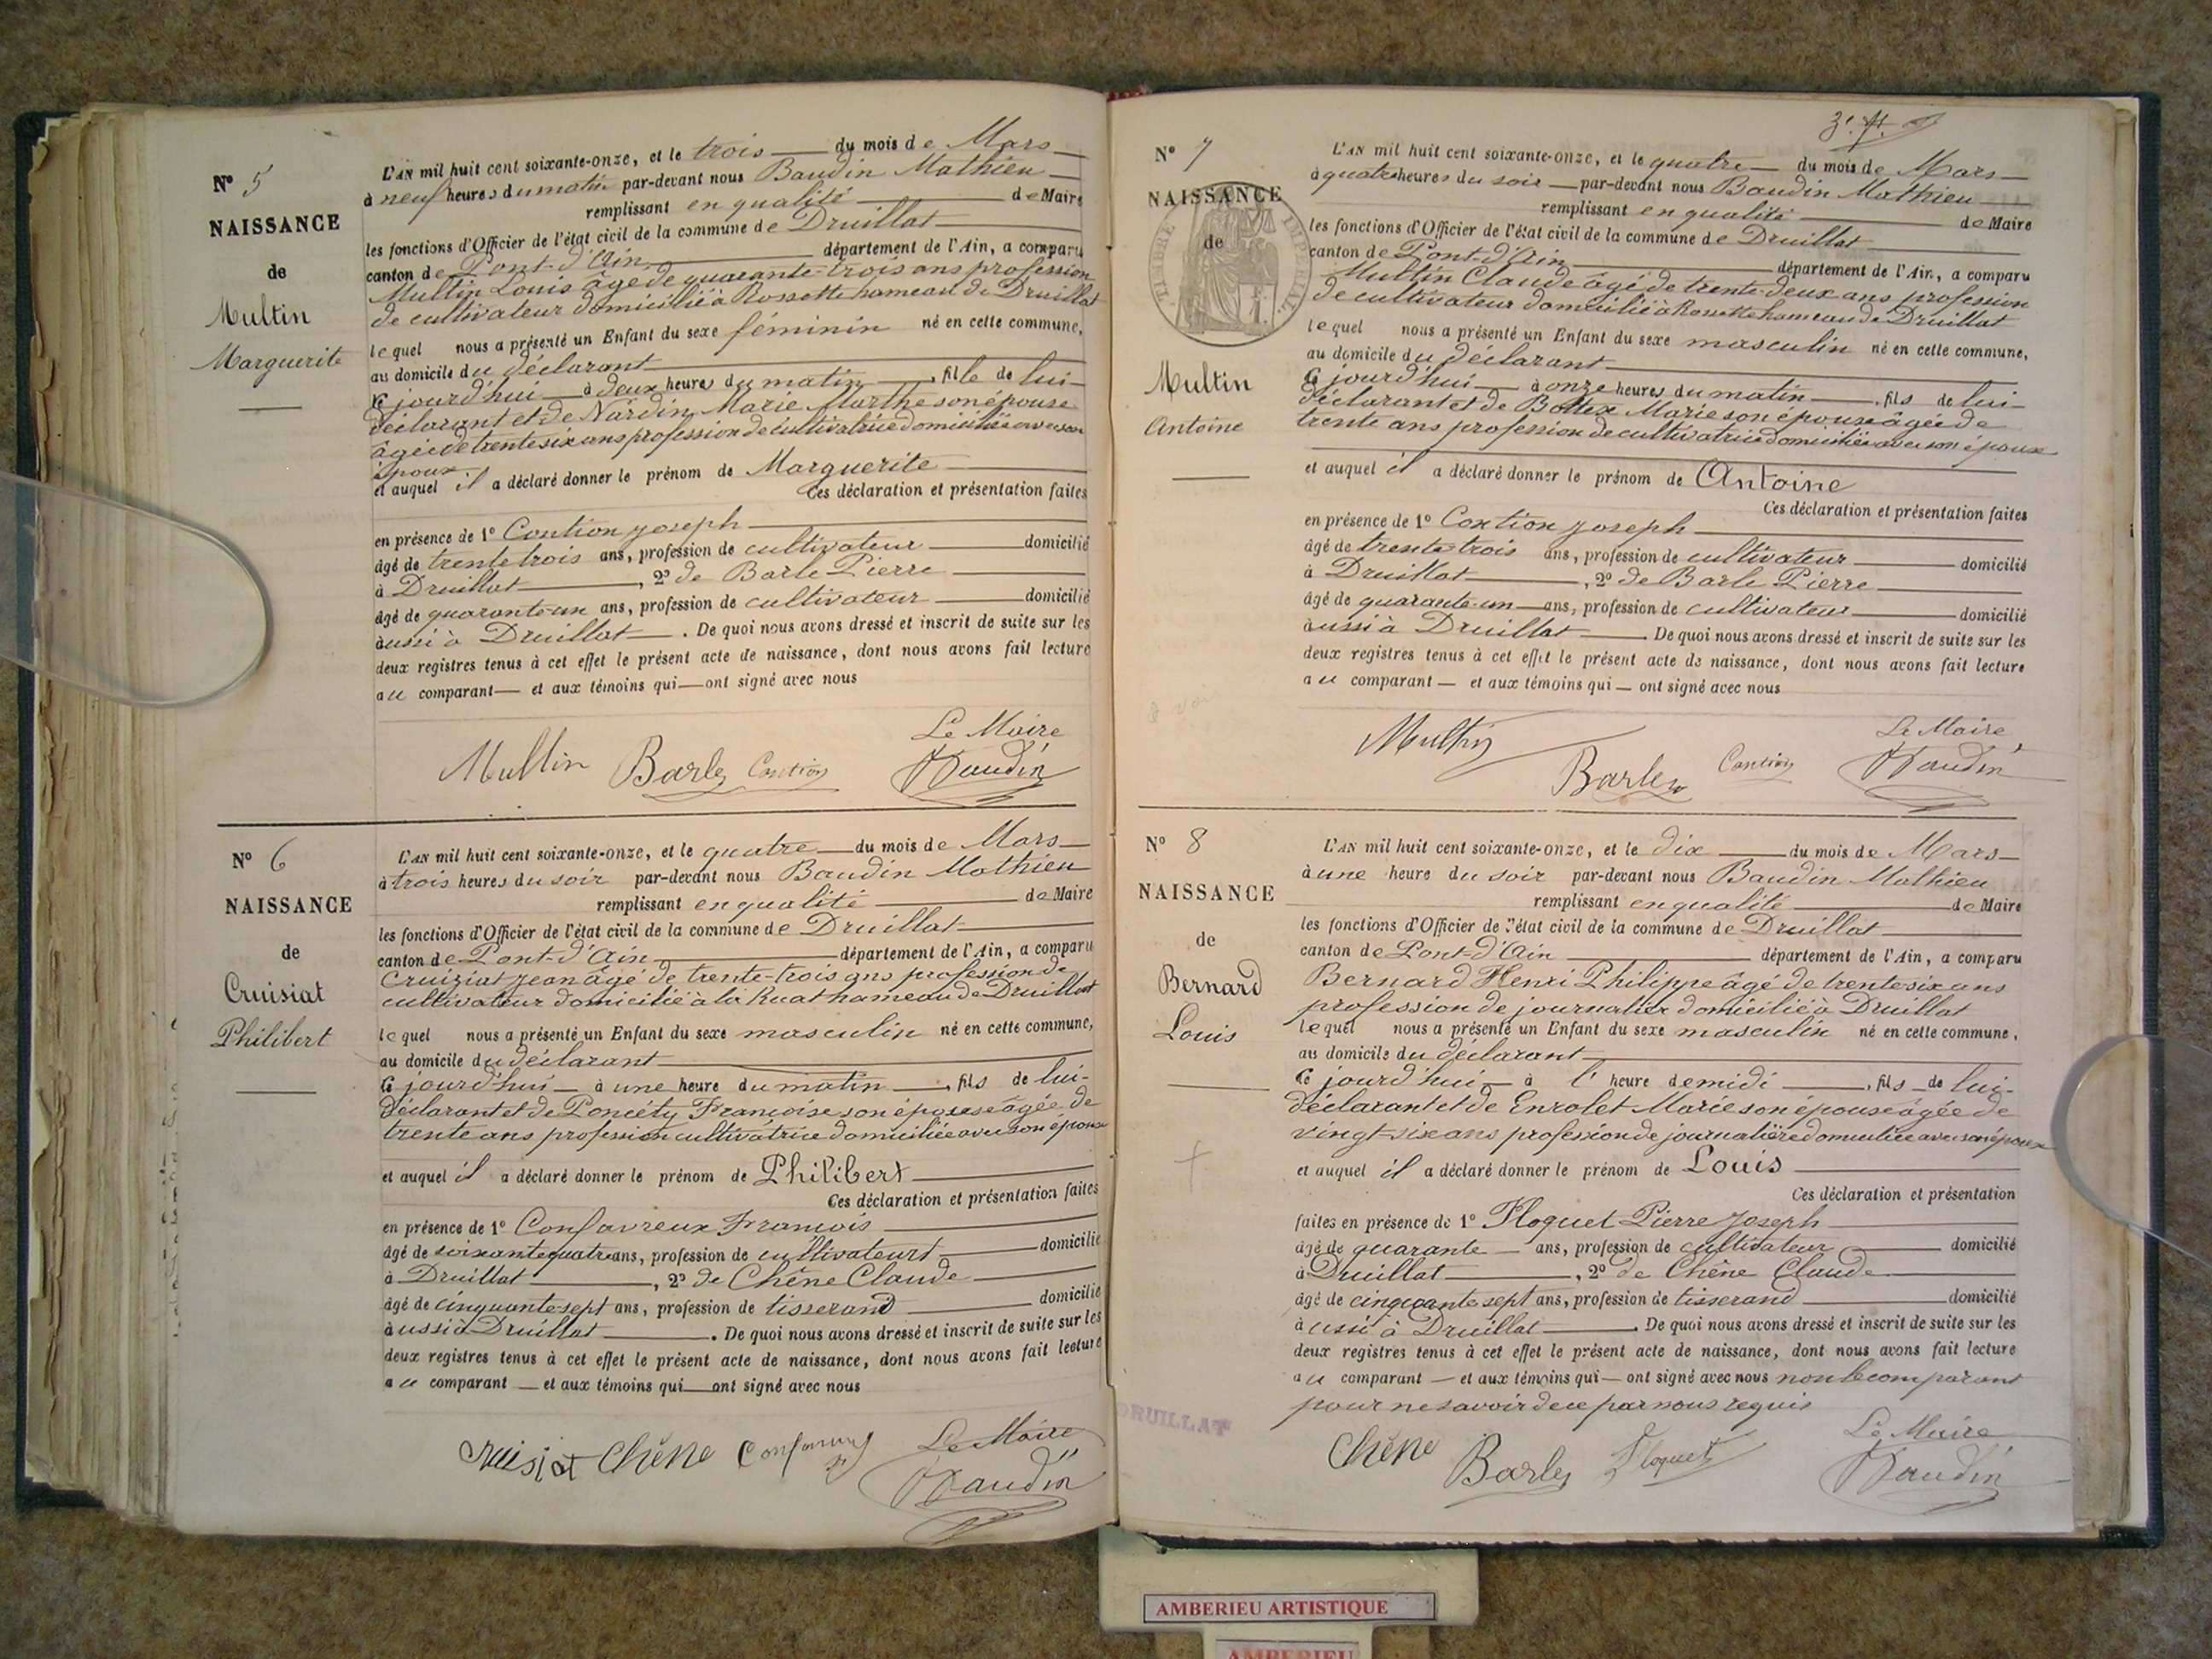 N° 5
NAISSANCE
de
Multin
Marguerite
L'AN mil huit cent soixante-onze, et le trois du mois de Mars
à neuf heures du matin par-devant nous Baudin Mathieu
remplissant en qualité de Maire
les fonctions d'Officier de l'état civil de la commune de Druillat
canton de Pont-d'Ain département de l'Ain, a comparu
Multin Louis âgé de quarante-trois ans profession
de cultivateur domicilié à Rossette hameau de Druillat
lequel nous a présenté un Enfant du sexe féminin né en cette commune,
au domicile du déclarant
ce jourd'hui à deux heures du matin, fille de lui
déclarant et de Nardin Marie Marthe son épouse
âgée de trente six ans profession de cultivatrice domiciliée avec son
époux
et auquel il a déclaré donner le prénom de Marguerite
Ces déclaration et présentation faites
en présence de 1° Contion Joseph
âgé de trente trois ans, profession de cultivateur domicilié
à Druillat, 2° de Barle Pierre
âgé de quarante-un ans, profession de cultivateur domicilié
aussi à Druillat. De quoi nous avons dressé et inscrit de suite sur les
deux registres tenus à cet effet le présent acte de naissance, dont nous avons fait lecture
au comparant et aux témoins qui ont signé avec nous
Le Maire
Multin Barle Contion Baudin
N° 6
NAISSANCE
de
Cruisiat
Philibert
L'AN mil huit cent soixante-onze, et le quatre du mois de Mars
à trois heures du soir par-devant nous Baudin Mathieu
remplissant en qualité de Maire
les fonctions d'Officier de l'état civil de la commune de Druillat
canton de Pont-d'Ain département de l'Ain, a comparu
Cruiziat Jean âgé de trente-trois ans profession de
cultivateur domicilié à la Ruat hameau de Druillat
lequel nous a présenté un Enfant du sexe masculin né en cette commune,
au domicile du déclarant
ce jourd'hui à une heure du matin, fils de lui-
déclarant et de Poncéty Françoise son épouse âgée de
trente ans profession cultivatrice domiciliée avec son époux
et auquel il a déclaré donner le prénom de Philibert
Ces déclaration et présentation faites
en présence de 1° Confavreux François
âgé de soixante quatre ans, profession de cultivateur domicilié
à Druillat, 2° de Chêne Claude
âgé de cinquante-sept ans, profession de tisserand domicilié
aussi à Druillat. De quoi nous avons dressé et inscrit de suite sur les
deux registres tenus à cet effet le présent acte de naissance, dont nous avons fait lecture
au comparant et aux témoins qui ont signé avec nous
Le Maire
Cruisiat Chêne Baudin
3e f.
N° 7
NAISSANCE
de
TIMBRE IMPÉRIAL
Multin
Antoine
L'AN mil huit cent soixante-onze, et le quatre du mois de Mars
à quatre heures du soir par-devant nous Baudin Mathieu
remplissant en qualité de Maire
les fonctions d'Officier de l'état civil de la commune de Druillat
canton de Pont-d'Ain département de l'Ain, a comparu
Multin Claude âgé de trente-deux ans profession
de cultivateur domicilié à Rossette hameau de Druillat
lequel nous a présenté un Enfant du sexe masculin né en cette commune,
au domicile du déclarant
ce jourd'hui à onze heures du matin, fils de lui-
déclarant et de Bottex Marie son épouse âgée de
trente ans profession de cultivatrice domiciliée avec son époux
et auquel il a déclaré donner le prénom de Antoine
Ces déclaration et présentation faites
en présence de 1° Contion Joseph
âgé de trente-trois ans, profession de cultivateur domicilié
à Druillat, 2° de Barle Pierre
âgé de quarante-un ans, profession de cultivateur domicilié
aussi à Druillat. De quoi nous avons dressé et inscrit de suite sur les
deux registres tenus à cet effet le présent acte de naissance, dont nous avons fait lecture
au comparant et aux témoins qui ont signé avec nous
Le Maire
Multin Barle Contion Baudin
N° 8
NAISSANCE
de
Bernard
Louis
L'AN mil huit cent soixante-onze, et le dix du mois de Mars
à une heure du soir par-devant nous Baudin Mathieu
remplissant en qualité de Maire
les fonctions d'Officier de l'état civil de la commune de Druillat
canton de Pont-d'Ain département de l'Ain, a comparu
Bernard Henri Philippe âgé de trente six ans
profession de journalier domicilié à Druillat
lequel nous a présenté un Enfant du sexe masculin né en cette commune,
au domicile du déclarant
ce jourd'hui à l'heure de midi, fils de lui-
déclarant et de Enrolet Marie son épouse âgée de
vingt-six ans profession de journalière domiciliée avec son époux
et auquel il a déclaré donner le prénom de Louis
Ces déclaration et présentation
faites en présence de 1° Floquet Pierre Joseph
âgé de quarante ans, profession de cultivateur domicilié
à Druillat, 2° de Chêne Claude
âgé de cinquante sept ans, profession de tisserand domicilié
aussi à Druillat. De quoi nous avons dressé et inscrit de suite sur les
deux registres tenus à cet effet le présent acte de naissance, dont nous avons fait lecture
au comparant et aux témoins qui ont signé avec nous non le comparant
pour ne savoir de ce par nous requis
Le Maire
Chêne Barle Floquet Baudin
DRUILLAT
AMBERIEU ARTISTIQUE
AMBERIEU